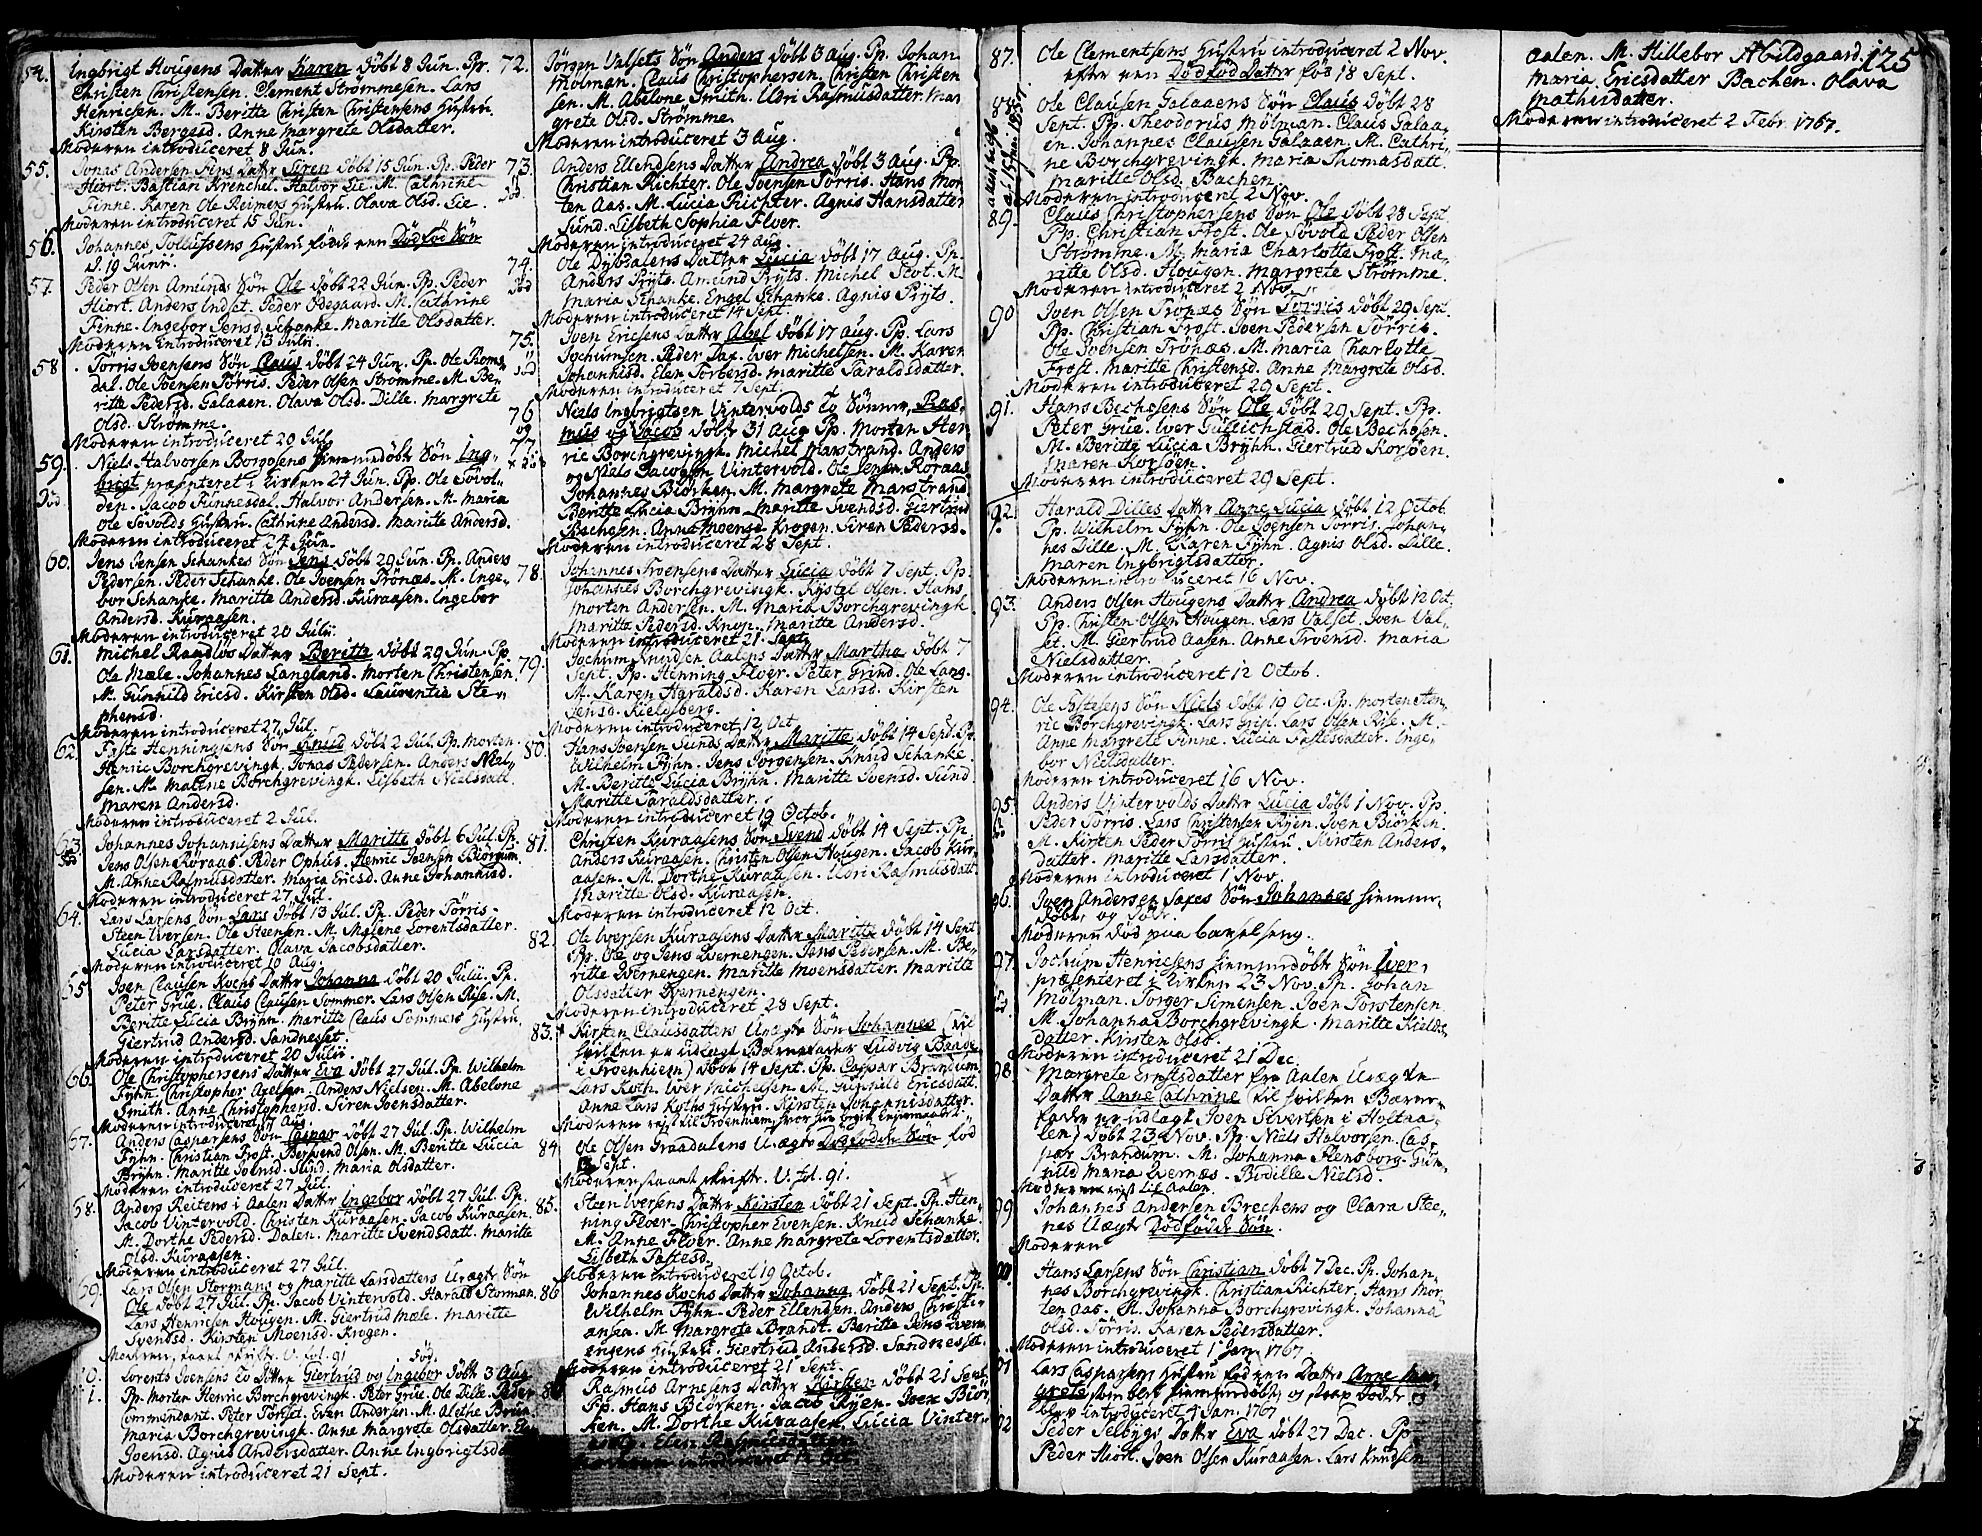 54. Ingbrigt Hougens Datter Karen döbt 8 Jun. Pp.
Christen Christensen. Clement Strömmesen. Lars
Henricsen. M. Beritte Christen Christensens Hustru.
Kirsten Bergesd. Anne Margrete Olsdatter.
Moderen introduceret 8 Jun.
55. Jonas Andersen Fins Datter Siren döbt 15 Jun. Pp. Peder
Hiort. Bastian Krenchel. Halvor Lie. M. Cathrine
Finne. Karen Ole Reimers Hustru. Olava Olsd. Lie.
Moderen introduceret 15 Jun.
56. Johannes Tollufsens Hustru födde en Dödföd Sön
d. 19 Junii.
57. Peder Olsen Amunds Sön Ole döbt 22 Jun. Pp. Peder
Hiort. Anders Indset. Peder Ödegaard. M. Cathrine
Finne. Ingebor Jensd. Schanke. Maritte Olsdatter.
Moderen introduceret 13 Julii.
58. Törris Joensens Sön Claus döbt 24 Jun. Pp. Ole Roms-
dal. Ole Joensen Törris. Peder Olsen Strömme. M. Be-
ritte Pedersd. Galaaen. Olava Olsd. Dille. Margrete
Olsd. Strömme.
Moderen introduceret 20 Jul.
59. Niels Halvorsen Borgosens hiemmedöbte Sön Ing-
död
brigt præsenteret i Kirken 24 Jun. Pp. Ole Sövol-
den. Jacob Finnesdal. Halvor Andersen. M. Maria
Ole Sövolds Hustru. Cathrine Andersd. Maritte Andersd.
Moderen introduceret 24 Jun.
60. Jens Jensen Schankes Sön Jens döbt 29 Jun. Pp. Anders
Pedersen. Peder Schanke. Ole Joensen Trönæs. M. Inge-
bor Schanke. Maritte Andersd. Kuraasen. Ingebor
Andersd. Kuraasen.
Moderen introduceret 20 Julii.
61. Michel Randlos Datter Beritte döbt 29 Jun. Pp.
Ole Mæle. Johannes Langland. Morten Christensen.
M. Gunhild Ericsd. Kirsten Olsd. Laurentia Ste-
phensd.
Moderen introduceret 27 Jul.
62. Faste Henningsens Sön Knud döbt 2 Jul. Pp. Morten
Henric Borchgrevingk. Jonas Pedersen. Anders Niel-
sen. M. Malene Borchgrevingk. Lisbeth Nielsdatt.
Maren Andersd.
Moderen introduceret 2 Jul.
63. Johannes Johannisens Datter Maritte döbt 6 Jul. Pp.
Jens Olsen Röraas. Peder Ophus. Henric Joensen Biörgum.
M. Anne Rasmusdatter. Maria Ericsd. Anne Johannisd.
Moderen introduceret 27 Jul.
64. Lars Larsens Sön Lars döbt 13 Jul. Pp. Peder Törris.
Steen Iversen. Ole Steensen. M. Malene Lorentsdatter.
Lucia Larsdatter. Olava Jacobsdatter.
Moderen introduceret 10 Aug.
65. Joen Clausen Kochs Datter Johanna döbt 20 Julii. Pp.
Peter Grue. Claus Clausen Sommer. Lars Olsen Riise. M.
Beritte Lucia Bryhn. Maritte Claus Sommers Hustru.
Giertrud Andersd. Sandnesset.
Moderen introduceret 20 Julii.
66. Ole Christophersens Datter Eva döbt 27 Jul. Pp. Wilhelm
Fyhn. Christopher Axelsen. Anders Nielsen. M. Abelone
Smith. Anne Christophersd. Siren Joensdatter.
Moderen introduceret Aug.
67. Anders Caspersens Sön Casper döbt 27 Jul. Pp. Wilhelm
Fyhn. Christian Frost. Bersvend Olsen. M. Beritte Lucia
Bryhn. Maritte Joensd. Sund. Maria Olsdatter.
Moderen introduceret 27 Jul.
68. Anders Reitens i Aalen Datter Ingebor döbt 27 Jul. Pp.
Jacob Vintervold. Christen Kuraasen. Jacob Kuraasen.
M. Dorthe Pedersd. Dalen. Maritte Svendsdatt. Maritte
Olsd. Kuraasen.
Moderen introduceret 27 Jul.
69. Lars Olsen Stormans og Maritte Larsdatters Uægte Sön
Ole döbt 27 Jul. Pp. Jacob Vintervold. Harald Storman.
Lars Henricsen Hougen. M. Giertrud Mæle. Maritte
Svendsd. Kirsten Moensd. Krogen.
Moderen, staaet skrifte. V. fol. 91
0. Lorents Joensens to Döttre Giertrud og Ingebor döbte 3 Aug.
1. Pp. Morten Henric Borchgrevingk. Peter Grue. Ole Dille. Peder
Commendant. Peter Tönset. Even Andersen. M. Alethe Bruun.
Maria Borchgrevingk. Anne Margrete Olsdatter. Elen
Joensd. Agnis Andersdatter. Anne Ingbrigtsd
Moderen introduceret 21 Sept.
72. Jörgen Valsets Sön Anders döbt 3 Aug. Pp. Johan
Molman. Claus Christophersen. Christen Christen
sen. M. Abelone Smith. Udri Rasmusdatter. Mar
grete Olsd. Strömme.
Moderen introduceret 3 Aug.
73. Anders Ellensens Datter Andrea döbt 3 Aug. Pp.
död. Christian Richter. Ole Joensen Törris. Hans Mor
ten Aas. M. Lucia Richter. Agnis Hansdatter
Sund. Lisbeth Sophia Floer.
Moderen introduceret 24 Aug.
74. Ole Dybdalens Datter Lucia döbt 17 Aug. Pp.
död Anders Pryts. Amund Pryts. Michel Scot. M.
Maria Schanke. Engel Schanke. Agnis Pryts.
Moderen introduceret 14 Sept.
75. Joen Ericsens Datter Abel döbt 17 Aug. Pp. Lars
död Jochumsen. Peder Sax. Iver Michelsen. M. Karen
Johannisd. Elen Torbersd. Maritte Taraldsdatter.
Moderen introduceret 7 Sept.
76 Niels Ingbrigtsen Vintervolds to Sönner, Ras-
og
77. mus og Jacob döbte 31 Aug. Pp. Morten Hen
ric Borchgrevingk. Michel Marstrand. Anders
og Niels Jacobsen Vintervold. Ole Jensen Röraas
Johannes Biörken. M. Margrete Marstrand
Beritte Lucia Bryhn. Maritte Svendsd. Giertrud
Bachosen. Anne Moensd. Krogen. Siren Pedersd.
Moderen introduceret 28 Sept.
78. Johannes Troensens Datter Lucia döbt 7 Sept. Pp.
Johannes Borchgrevingk. Kystel Olsen. Hans
Morten Andersen. M. Maria Borchgrevingk.
Maritte Pedersd. Knop. Maritte Andersd.
Moderen introduceret 21. Sept.
79. Jochum Knudsen Aalens Datter Martha döbt 7
Sept. Pp. Henning Floer. Peter Grind. Ole Lang.
M. Karen Haraldsd. Karen Larsd. Kirsten
Jensd. Kieldsberg.
Moderen introduceret 12 Oct.
80. Hans Joensen Sunds Datter Maritte döbt 14 Sept. Pp.
Wilhelm Fyhn. Jens Jörgensen. Knud Schanke.
M. Beritte Lucia Bryhn. Maritte Joensd. Sund
Maritte Taraldsdatter.
Moderen introduceret 19 Octob.
81. Christen Kuraasens Sön Svend döbt 14 Sept. Pp.
Anders Kuraasen. Christen Olsen Hougen. Jacob Kur
aasen. M. Dorthe Kuraasen. Udri Rasmusdatt
Maritte Olsd. Kuraasen.
Moderen introduceret 12 Oct.
82. Ole Iversen Kuraasens Datter Maritte döbt 14 Sept
Pp. Ole og Jens Qvernengen. Jens Pedersen. M. Be-
ritte Qvernengen. Maritte Moensdatter. Maritte
Olsdatter Qvernengen.
Moderen introduceret 28 Sept.
83. Kirsten Clausdatters Uægte Sön Johannes (til
hvilken er udlagt Barnefader Ludvig Brandt
i Tronhiem) döbt 14 Sept. Pp. Caspar Brandum
Lars Koth. Iver Michelsen. M. Gunhild Ericsdatt.
Anne Lars Koths Hustru. Kirsten Johannisdatter.
Moderen reist til Tronhiem, hvor hun
84 Ole Olsen Graadalens Uægte Dödföden Sön föd
Sept.
Moderen staaet skrifte. V. fol. 91.
85. Steen Iversens Datter Kirsten döbt 21 Sept. Pp. Hen-
ning Floer. Christopher Evensen. Knud Schanke.
M. Anne Floer. Anne Margrete Lorentsdatter.
Lisbeth Fastesd.
Moderen introduceret 19 Octob.
86 Johannes Kochs Datter Johanna döbt 21 Sept. Pp.
Wilhelm Fyhn. Peder Ellensen. Anders Christi-
ansen. M. Margrete Brandt. Beritte Jens Qvern
engens Hustru. Giertrud Andersd. Sandnesset.
Moderen introduceret 21 Sept.
Rasmus Arnesens Datter Kirsten döbt 21 Sept
Pp. Hans Biörken. Jacob Ryen. Joen Biör
ken. M. Dorthe Kuraasen. Lucia Vinter-
vold. Elen Rasmusdatter.
Moderen introduceret 12 Oct.
87. Ole Clementsens Hustru introduceret 2 Nov.
efter een Dödföd Datter föd 18 Sept.
88. Ole Clausen Galaaens Sön Claus döbt 28
Sept. Pp. Theodorus Mölman. Claus Galaa-
en. Johannes Clausen Galaaen. M. Cathri-
ne Borchgrevingk. Maria Thomasdatt.
Maritte Olsd. Bachen.
Moderen introduceret 2 Nov.
89. Claus Christophersens Sön Ole döbt 28 Sept.
Pp. Christian Frost. Ole Sövold. Peder Olsen
Strömme. M. Maria Charlotte Frost. Ma-
ritte Olsd. Hougen. Margrete Strömme.
Moderen introduceret 2 Nov.
90 Joen Olsen Trönæs Sön Törris döbt 29 Sept.
Pp. Christian Frost. Joen Pedersen Törris.
Ole Joensen Trönæs. M. Maria Charlotte
Frost. Maritte Christensd. Anne Margrete Olsd.
Moderen introduceret 29 Sept.
91. Hans Bechosens Sön Ole döbt 29 Sept. Pp.
Peter Grue. Iver Gullichstad. Ole Bechosen.
M. Beritte Lucia Bryhn. Giertrud Korsöen.
Maren Korsöen.
Moderen introduceret 29 Sept.
92. Harald Dilles Datter Anne Lucia döbt 12 Octob.
Pp. Wilhelm Fyhn. Ole Joensen Törris. Johan-
nes Dille. M. Karen Fyhn. Agnis Olsd. Dille.
Maren Ingbrigtsdatter.
Moderen introduceret 16 Nov.
93. Anders Olsen Hougens Datter Andrea döbt 12 Oct.
Pp. Christen Olsen Hougen. Lars Valset. Joen Val-
set. M. Giertrud Aasen. Anne Troensd. Maria
Nielsdatter.
Moderen introduceret 12 Octob.
94. Ole Fastesens Sön Niels döbt 19 Oct. Pp. Morten Hen-
ric Borchgrevingk. Lars Grip. Lars Olsen Riise. M.
Anne Margrete Finne. Lucia Fastesdatter. Inge-
bor Nielsdatter.
Moderen introduceret 16 Nov.
95. Anders Vintervolds Datter Lucia döbt 1 Nov. Pp.
Peder Törris. Lars Christensen Ryen. Joen Biörken.
M. Kirsten Peder Törris Hustru. Kirsten Anders-
datter. Maritte Larsdatter.
Moderen introduceret 1 Nov.
96. Joen Andersen Saxes Sön Johannes hiemme-
döbt, og död.
Moderen död paa barselseng.
97. Jochum Henricsens hiemmedöbte Sön Iver,
præsenteret i Kirken 23 Nov. Pp. Johan
Mölman. Torger Simensen. Joen Torstensen.
M. Johanna Borchgrevingk. Maritte Kields-
datter. Kirsten Olsd.
Moderen introduceret 21 Dec.
98. Margrete Ernstsdatter fra Aalen Uægte
Datter Anne Cathrine (til hvilken Barne-
fader er udlagt Joen Sivertsen i Holtaa-
len) döbt 23 Nov. Pp. Niels Halvorsen. Cas-
per Brandum. M. Johanna Flensborg. Gun-
nild Maria Qvernæs. Bodille Nielsd.
Moderen reist til Aalen.
99 Johannes Andersen Brechens og Clara Stee-
nes Uægte Dödfödde Sön.
Moderen
Hans Larsens Sön Christian döbt 7 Dec. Pp. Johan-
nes Borchgrevingk. Christian Richter. Hans Mor-
ten Aas. M. Johanna Borchgrevingk. Johanna
Olsd. Törris. Karen Pedersdatter.
Moderen introduceret 1 Jan. 1767.
01 Lars Caspersens Hustru föd een Datter Anne Mar-
grete som blev hiemmedöbt, og strax döde.
blev introduceret 4 Jan. 1767
02 Peder Selbygs Datter Eva döbt 27 Dec. Pp.
Peder Hiort. Joen Olsen Kuraasen. Lars Knudsen
125
Aalen. M. Hillebor Abildgaard.
Maria Ericsdatter Bachen. Olava
Mathisdatter.
Moderen introduceret 2 Febr. 1767.